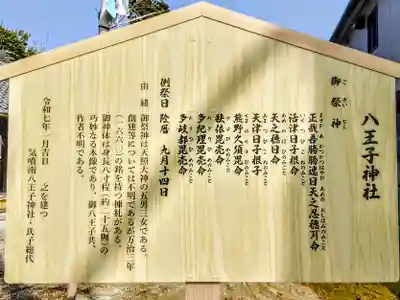 八王子神社
御祭神
ごさいじん
正哉吾勝勝速日天之忍穂耳命
活津日子根命
天之穂日命
天津日子根子
熊野久須毘命
狭依毘売命
多紀理毘売命
多岐都毘売命
例祭日 陰暦 九月十四日
由緒 御祭神は天照大神の五男三女である。
創建等については不明であるが万治三年
(一六六〇)の銘を持つ棟札がある。
御神体は身長八寸程(約二十五糎)の
巧妙なる木像であり、御八王子共、
作者不明である。
令和七年一月吉日 之を建つ
気噴南八王子神社・氏子総代